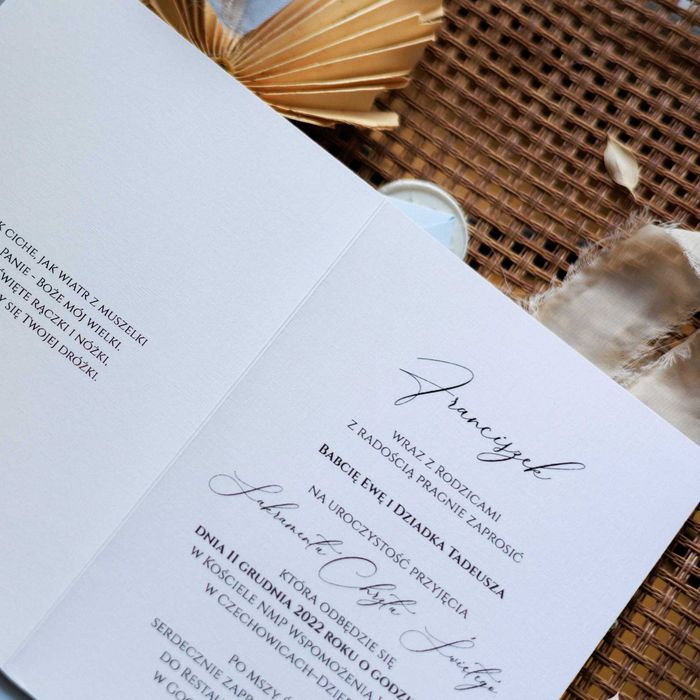 CICHE, JAK WIATR Z MUSZELKI
PANIE – BOŻE MÓJ WIELKI,
RĄCZKI I NÓŻKI,
SIĘ TWOJEJ DRÓŻKI.
Franciszek
WRAZ Z RODZICAMI
Z RADOŚCIĄ PRAGNIE ZAPROSIĆ
BABCIĘ EWĘ I DZIADKA TADEUSZA
NA UROCZYSTOŚĆ PRZYJĘCIA
Sakramentu Chrztu Świętego
KTÓRA ODBĘDZIE SIĘ
DNIA 11 GRUDNIA 2022 ROKU O
W KOŚCIELE NMP WSPOMOŻENIA
W CZECHOWICACH-
PO MSZY
SERDECZNIE
DO
W